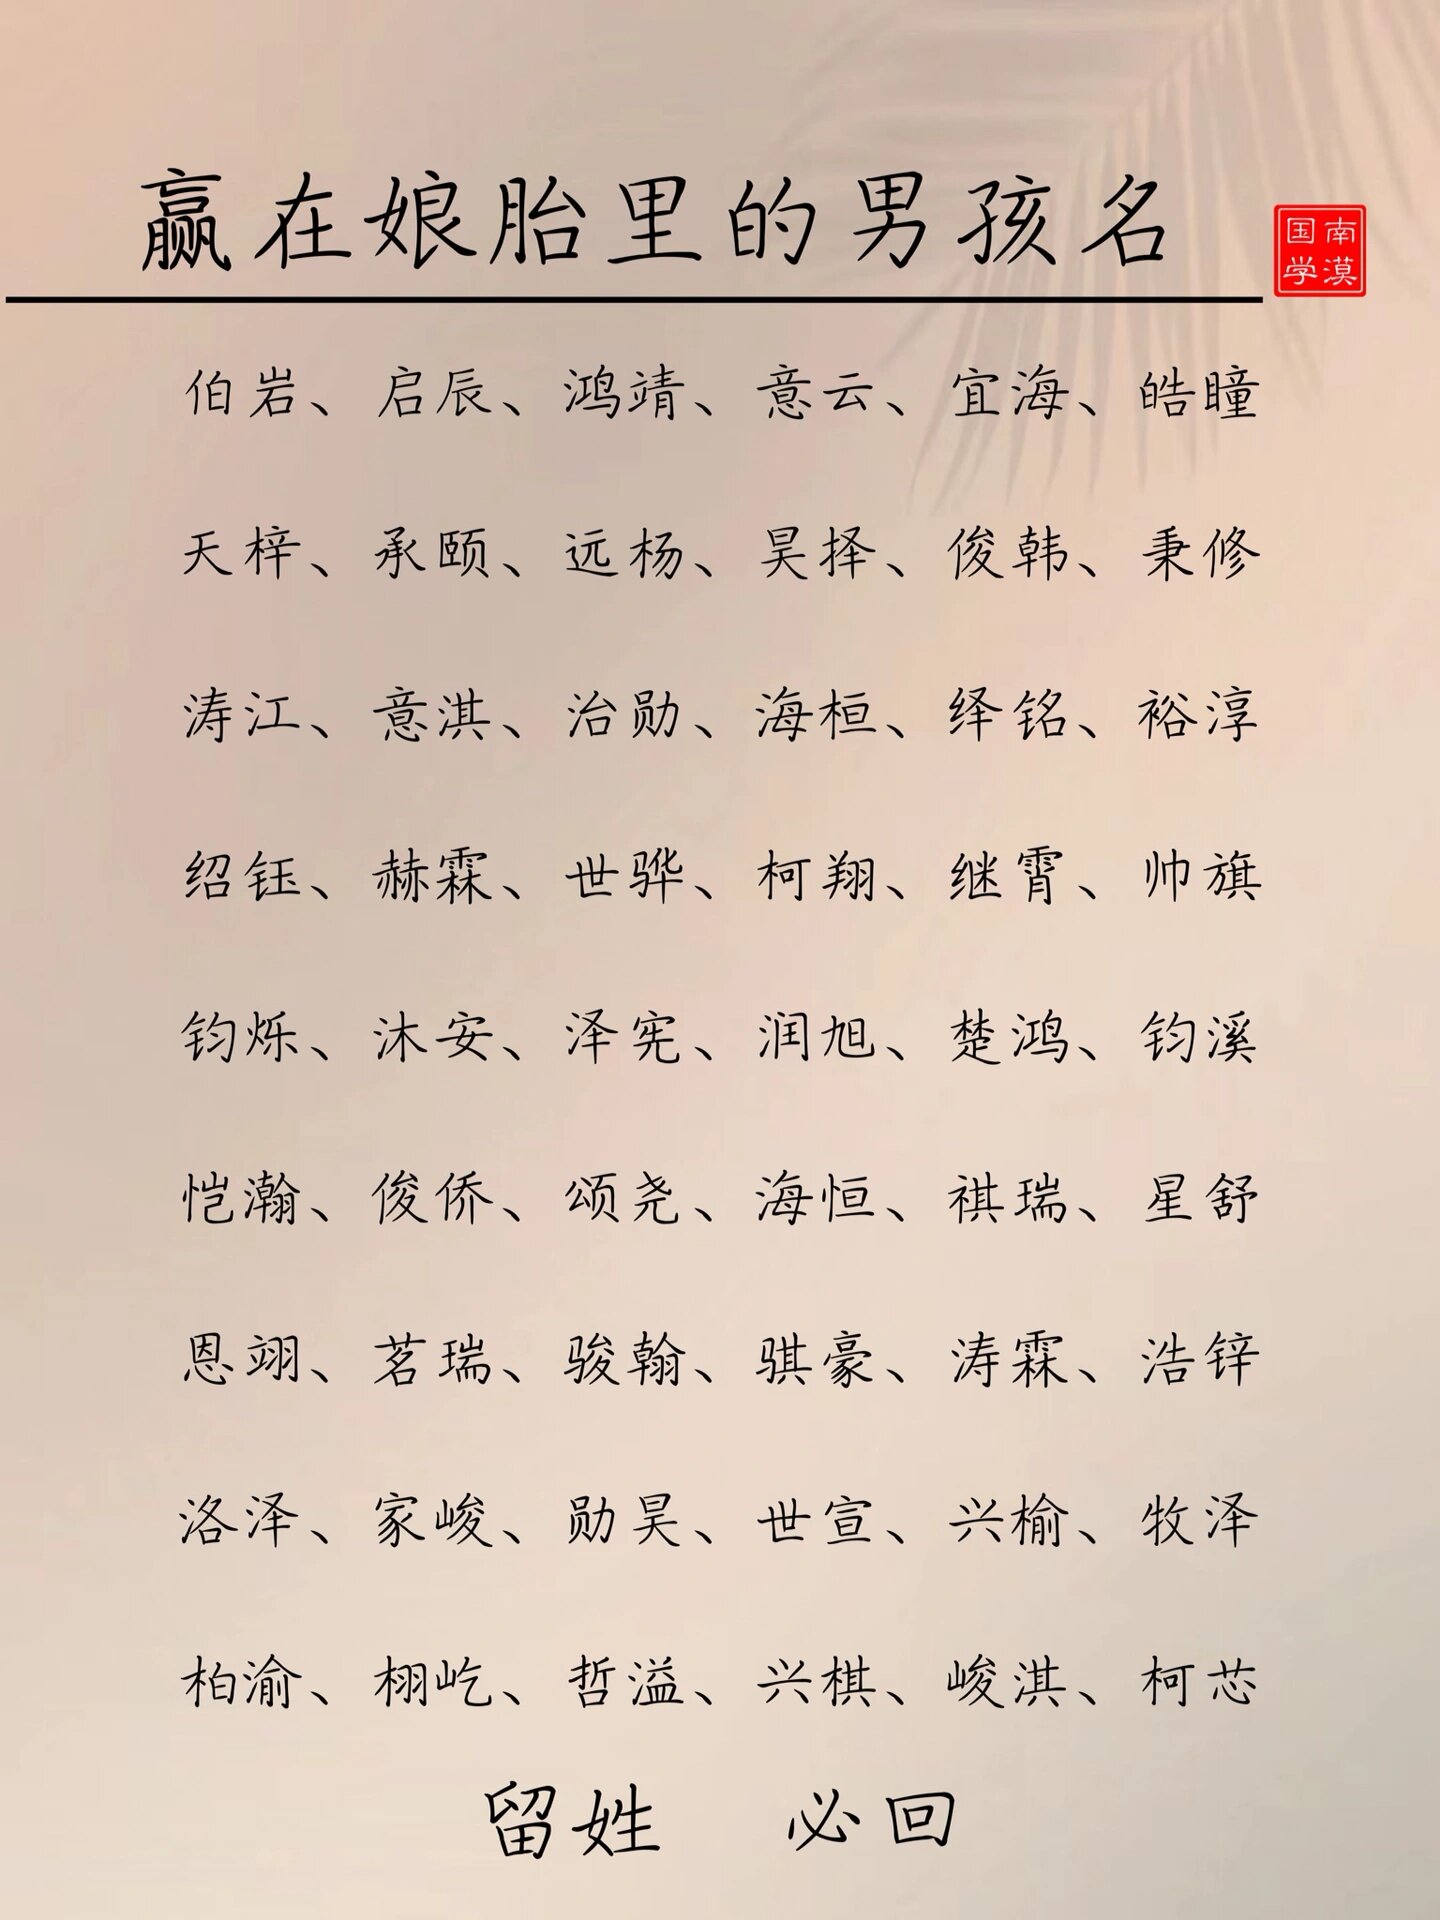 赢在娘胎里的男孩名
南漠国学
伯岩、启辰、鸿靖、意云、宜海、皓瞳
天梓、承颐、远杨、昊择、俊韩、秉修
涛江、意淇、治勋、海桓、绎铭、裕淳
绍钰、赫霖、世骅、柯翔、继霄、帅旗
钧烁、沐安、泽宪、润旭、楚鸿、钧溪
恺瀚、俊侨、颂尧、海恒、祺瑞、星舒
恩翊、茗瑞、骏翰、骐豪、涛霖、浩锌
洛泽、家峻、勋昊、世宣、兴榆、牧泽
柏渝、栩屹、哲溢、兴棋、峻淇、柯芯
留姓 必回